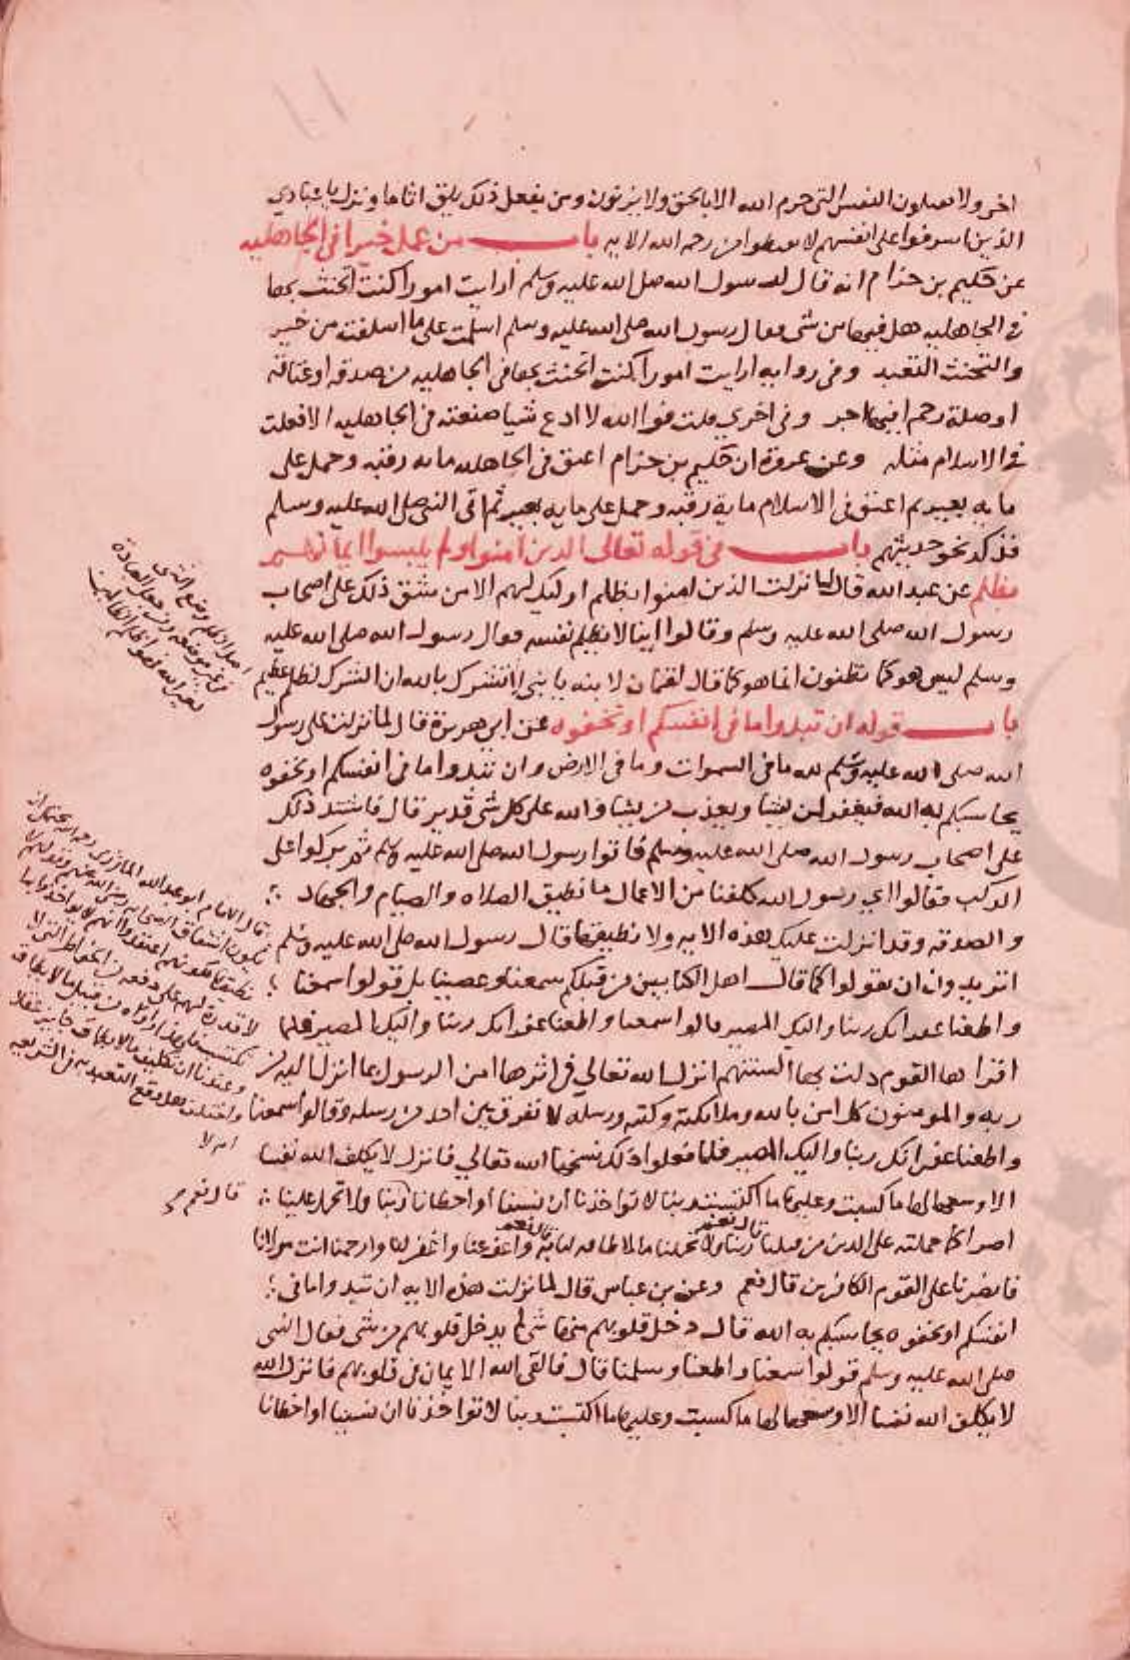 اخر ولا يقتلون النفس التي حرم الله الا بالحق ولا يزنون ومن يفعل ذلك يلق اثاما ونزل يا عبادي
الذين اسرفوا على انفسهم لا تقنطوا من رحمه الله الايه باب من عمل خيرا في الجاهليه
عن حكيم بن حزام انه قال لرسول الله صلى الله عليه وسلم ارايت امورا كنت اتحنث بها
في الجاهليه هل فيها من شى فقال رسول الله صلى الله عليه وسلم اسلمت على ما اسلفت من خير
والتحنث التعبد وفى روايه ارايت امورا كنت اتحنث بها في الجاهليه من صدقه او عتاقه
او صلة رحم افيها اجر وفى اخري قلت فوا الله لا ادع شيا صنعته فى الجاهليه الا فعلت
في الاسلام مثله وعن عروة ان حكيم بن حزام اعتق فى الجاهليه مايه رقبه وحمل على
مايه بعير ثم اعتق فى الاسلام ماية رقبه وحمل على مايه بعير ثم اتى النبى صلى الله عليه وسلم
فذكر نحو حديثهم باب فى قوله تعالى الذين امنوا ولم يلبسوا ايمانهم
بظلم عن عبد الله قال لما نزلت الذين امنوا بظلم اوليك لهم الامن شق ذلك على اصحاب
رسول الله صلى الله عليه وسلم وقالوا اينا لا يظلم نفسه فقال رسول الله صلى الله عليه
وسلم ليس هو كما تظنون انما هو كما قال لقمان لابنه يا بنى لا تشرك بالله ان الشرك لظلم عظيم
باب قوله ان تبدوا ما فى انفسكم او تخفوه عن ابى هريرة قال لما نزلت على رسول
الله صلى الله عليه وسلم لله ما فى السموات وما فى الارض وان تبدوا ما فى انفسكم او تخفوه
يحاسبكم به الله فيغفر لمن يشا ويعذب من يشا والله على كل شى قدير قال فاشتد ذلك
على اصحاب رسول الله صلى الله عليه وسلم فاتوا رسول الله صلى الله عليه وسلم ثم بركوا على
الركب فقالوا اي رسول الله كلفنا من الاعمال ما نطيق الصلاه والصيام والجهاد
والصدقه وقد انزلت عليك هذه الايه ولا نطيقها قال رسول الله صلى الله عليه وسلم
اتريدون ان تقولوا كما قال اهل الكتابين من قبلكم سمعنا وعصينا بل قولوا سمعنا
واطعنا غفرانك ربنا واليك المصير قالوا سمعنا واطعنا غفرانك ربنا واليك المصير فلما
اقتراها القوم ذلت بها السنتهم انزل الله تعالي في اثرها امن الرسول بما انزل اليه من
ربه والمومنون كل امن بالله وملايكته وكتبه ورسله لا نفرق بين احد من رسله وقالوا سمعنا
واطعنا غفرانك ربنا واليك المصير فلما فعلوا ذلك نسخها الله تعالي فانزل لا يكلف الله نفسا
الا وسعها لها ما كسبت وعليها ما اكتسبت ربنا لا تواخذنا ان نسينا او اخطانا ربنا ولا تحمل علينا
قال نعم
اصرا كما حملته على الذين من قبلنا قال نعم ربنا ولا تحملنا ما لا طاقه لنا به قال نعم واعف عنا واغفر لنا وارحمنا انت مولانا
فانصرنا على القوم الكافرين قال نعم وعن بن عباس قال لما نزلت هذه الايه ان تبدوا ما فى
انفسكم او تخفوه يحاسبكم به الله قال دخل قلوبهم منها شى لم يدخل قلوبهم من شى فقال النبى
صلى الله عليه وسلم قولوا سمعنا واطعنا وسلمنا قال فالقى الله الايمان فى قلوبهم فانزل الله
لا يكلف الله نفسا الا وسعها لها ما كسبت وعليها ما اكتسبت ربنا لا تواخذنا ان نسينا او اخطانا
اصل الظلم وضع الشى
فى غير موضعه ومن جعل العباده
لغير الله فهو اظلم الظالمين
قال الامام ابو عبد الله المازري رحمه الله يحتمل ان
يكون اشفاق الصحابه رضى الله عنهم وقولهم لا
نطيقها لكونهم اعتقدوا انهم يواخذوا بما
لا قدرة لهم على دفعه من الخواطر التى لا
تكتسب فلهذا راوه من قبل ما لا يطاق
وعندنا ان تكليف ما لا يطاق جايز عقلا
واختلف هل وقع التعبد به فى الشريعه
ام لا